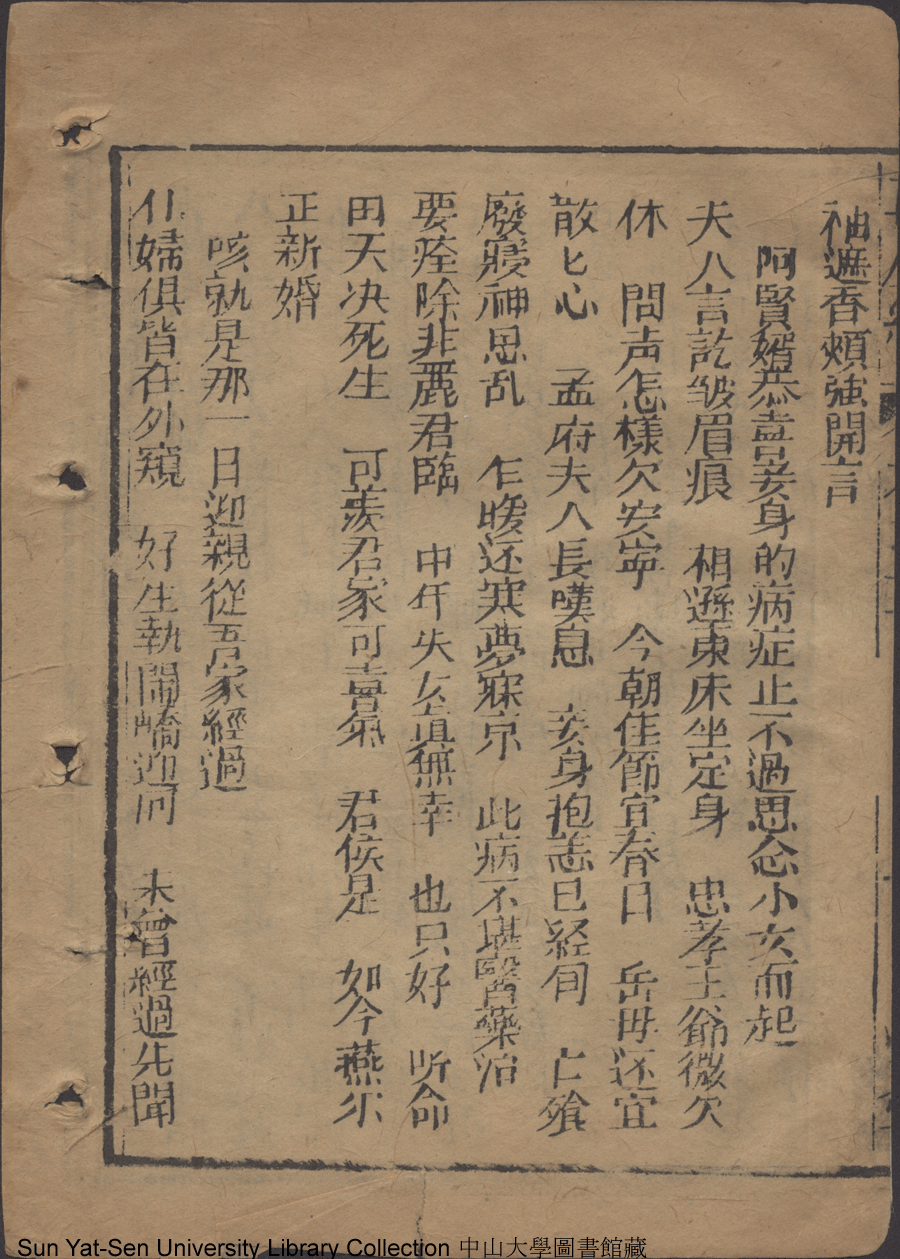 袖遮香頰強開言
阿賢婿恭喜妾身的病症止不過思念小女而起
夫人言訖皺眉痕 相遜東床坐定身 忠孝王爺微欠
休 問声怎樣欠安寧 今朝佳節宜春日 岳母还宜
散匕心 孟府夫人長嘆息 妾身抱恙已経旬 亡飱
廢寢神思乱 乍暖还寒夢寐京 此病不堪醫藥治
要痊除非麗君臨 中年失女眞無幸 也只好 听命
由天决死生 可羨君家可喜氣 君侯是 如今燕尔
正新婚
咳就是那一日迎親從吾家經過
仆婦俱皆在外窺 好生執鬧轎迎河 未曾經過先聞
Sun Yat-Sen University Library Collection 中山大學圖書館藏